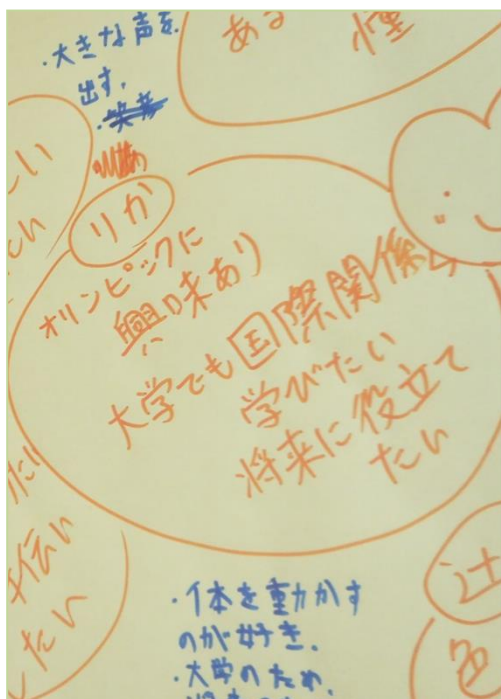 ・大きな声を
出す。
ある
憧
りか
オリンピックに
興味あり
大学でも国際関係
学びたい
将来に役立て
たい
伝い
たい
辻
色
・体を動かす
のが好き。
・大学のため、